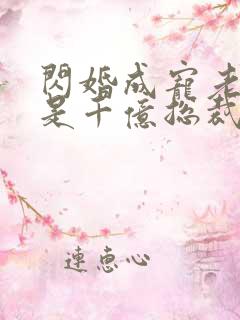 閃婚成寵老
是千億總裁
連惠心